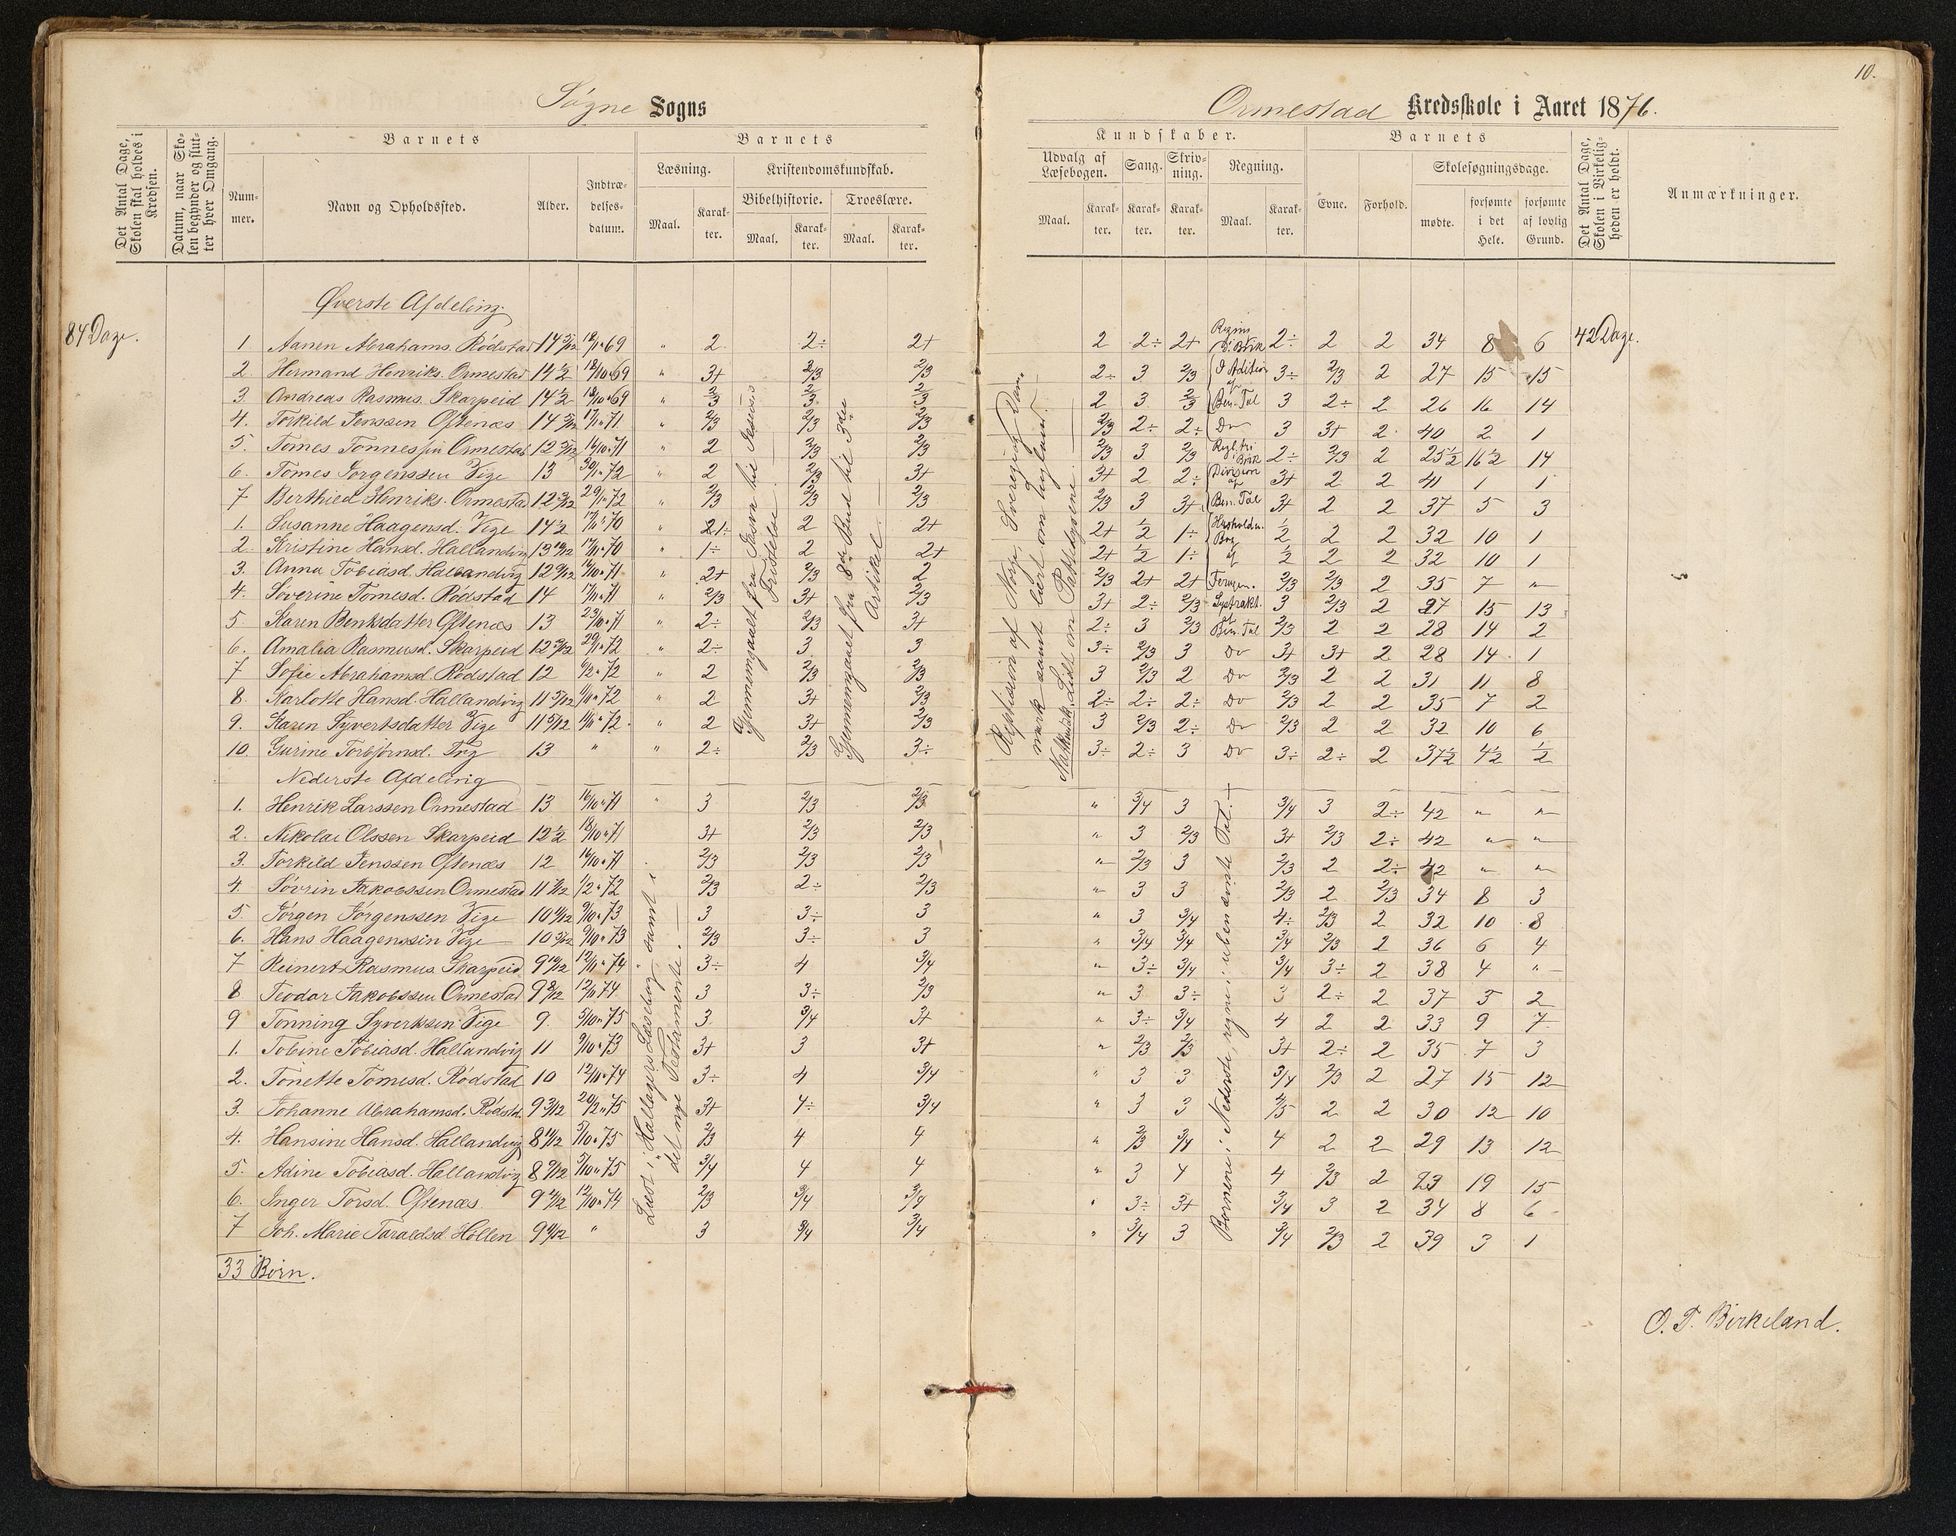 10.
Søgne Sogns
Ormestad Kredsskole i Aaret 1876.
Det Antal Dage, Skolen skal holdes i Kredsen.
Datum, naar Skolen begynder og slutter hver Omgang.
Barnets
Nummer.
Navn og Opholdssted.
Alder.
Indtrædelsesdatum.
Barnets
Læsning.
Maal.
Karakter.
Kristendomskundskab.
Bibelhistorie.
Maal.
Karakter.
Troeslære.
Maal.
Karakter.
Kundskaber.
Udvalg af Læsebogen.
Maal.
Karakter.
Sang.
Karakter.
Skrivning.
Karakter.
Regning.
Maal.
Karakter.
Barnets
Evne.
Forhold.
Skolesøgningsdage.
mødte.
forsømte i det Hele.
forsømte af lovlig Grund.
Det Antal Dage, Skolen i Virkeligheden er holdt.
Anmærkninger.
84 Dage.
42 Dage.
Øverste Afdeling.
1 Aanen Abrahams. Rødstad 14 5/12 18/10 69 " 2 2÷ 2+ 2 2÷ 2+ 2÷ 2 2 34 8 6
2. Hermand Henriks. Ormestad 14 1/2 18/10 69 " 3+ 2/3 2/3 2÷ 3 2/3 3÷ 2/3 2 27 15 15
3. Andreas Rasmus. Skarpeid 14 1/2 18/10 69 " 2/3 2/3 2/3 2 3 2/3 Ben. Tal 3 2÷ 2 26 16 14
4. Torkild Jenssen Oftenæs 14 17/10 71 " 2/3 2/3 2/3 2/3 2÷ 2÷ Do 3 3+ 2 40 2 1
5. Tomes Tønnessen Ormestad 12 16/10 71 " 2 2/3 2/3 2/3 3 2/3 2÷ 2/3 2 25 1/2 16 1/2 14
6. Tomes Jørgenssen Vige 13 72 " 2 2/3 3+ 3+ 2 2÷ Division af 3+ 2 2 41 1 1
7 Berthied Henriks. Ormestad 12 72 " 2/3 2/3 2/3 2/3 3 3+ Ben. Tal 3+ 2 2 37 5 3
1. Susanne Haagensd. Vige 14 1/2 70 " 2 2+ 2+ 1/2 1÷ 1/2 2 2 32 10 1
2. Kristine Hansd. Hallandvig 13 70 " 1÷ 2 2+ 2+ 1/2 1÷ 1/2 2 2 32 10 1
3. Anna Tobiasd. Hallandvig 12 71 " 2+ 2/3 2 2/3 2+ 2+ 2/3 2/3 2 35 7 "
4. Søverine Tomesd. Rødstad 14 71 " 2/3 3+ 2/3 3+ 2÷ 2/3 3 2/3 2 27 15 13
5 Karen Benksdatter Oftenæs 13 71 " 2÷ 2/3 3+ 2÷ 3 2/3 Ben. Tal 2/3 2 2 28 14 2
6. Amalia Rasmusd. Skarpeid 12 72 " 2÷ 3 3 3÷ 2/3 3 Do 3+ 3+ 2 28 14 1
7 Sofie Abrahamsd. Rødstad 12 72 " 2 2/3 2/3 3 2/3 2 Do 2/3 2 2 31 11 8
8. Karlotte Hansd. Hallandvig 11 72 " 2 3+ 2/3 2÷ 2÷ 2÷ Do 2/3 2 2 35 7 2
9. Karen Syvertsdatter Vige 11 72 " 2 3+ 2/3 3 2/3 2÷ Do 2/3 2 2 32 10 6
10. Gurine Torbjørnsd. 13 " " 2÷ 2/3 3÷ 3÷ 2÷ 3 Do 3÷ 2÷ 2 37 1/2 4 1/2 1/2
Gjennemgaaet fra Jesu til Jesus's Fristelse.
Gjennemgaaet fra 8de Bud til 3die Artikel.
Repetision af Norge, Sverige og Danmark samt lært om Tyskland.
Nederste Afdeling
1. Henrik Larssen Ormestad 13 16/10 71 " 3 2/3 2/3 " 3/4 3 3/4 3 2÷ 42 " "
2. Nikolai Olssen Skarpeid 12 1/2 18/10 71 3+ 2/3 2/3 " 3 2/3 3+ 2/3 2÷ 42 " "
3. Torkild Jenssen Oftenæs 12 16/10 71 2/3 2/3 2/3 " 2/3 3 2/3 2 2÷ 42 " "
4. Søvrin Jakobssen Ormestad 11 72 2/3 2÷ 2/3 " 3 3 2/3 2 2/3 34 8 3
5. Jørgen Jørgenssen Vige 10 9/10 73 3 3÷ 3 " 3 3/4 4÷ 2/3 2 32 10 8
6. Hans Haagenssen Vige 10 9/10 73 2/3 3÷ 3 " 3/4 3/4 3/4 2/3 2 36 6 4
7 Reinert Rasmus. Skarpeid 9 74 3÷ 4 3/4 " 3÷ 3/4 3/4 3÷ 2 38 4 "
8 Teodor Jakobssen Ormestad 9 74 3 3÷ 2/3 " 3 3÷ 3 2÷ 2 37 5 2
9 Tønning Syvertssen Vige 9. 5/10 75 3 3/4 3+ " 3÷ 3/4 4 2 2 33 9 7
1. Tobine Tobiasd. Hallandvig 11 9/10 73 3+ 3 3+ " 2/3 2/3 3+ 2÷ 2 35 7 3
2. Tonette Tomesd. Rødstad 10 12/10 74 3÷ 4 3/4 " 3 3 3/4 2/3 2 27 15 12
3. Johanne Abrahamsd. Rødsta. 9 3/12 75 3+ 4÷ 3/4 " 3 3 2 2 30 12 10
4. Hansine Hansd. Hallandvig 8 5/10 75 2/3 4 4 " 2/3 3/4 4 2 2 29 13 12
5. Adine Tobiasd. Hallandvig 8 5/10 75 3/4 4 4 " 3 4 4 2/3 2 23 19 15
6. Inger Torsd. Oftenæs. 9 12/10 74 2/3 3/4 3/4 " 3÷ 3+ 3/4 3 2 34 8 6
7 Joh. Marie Taraldsd. Høllen 9 " 3 3/4 3/4 " 3/4 3 3/4 2/3 2 39 3 1
Læst i Hallagers Læsebog, samt i det nye Testamente.
Børnene i Nederste, regne i ubenævnte Tal.
33 Børn.
O. T. Birkeland.